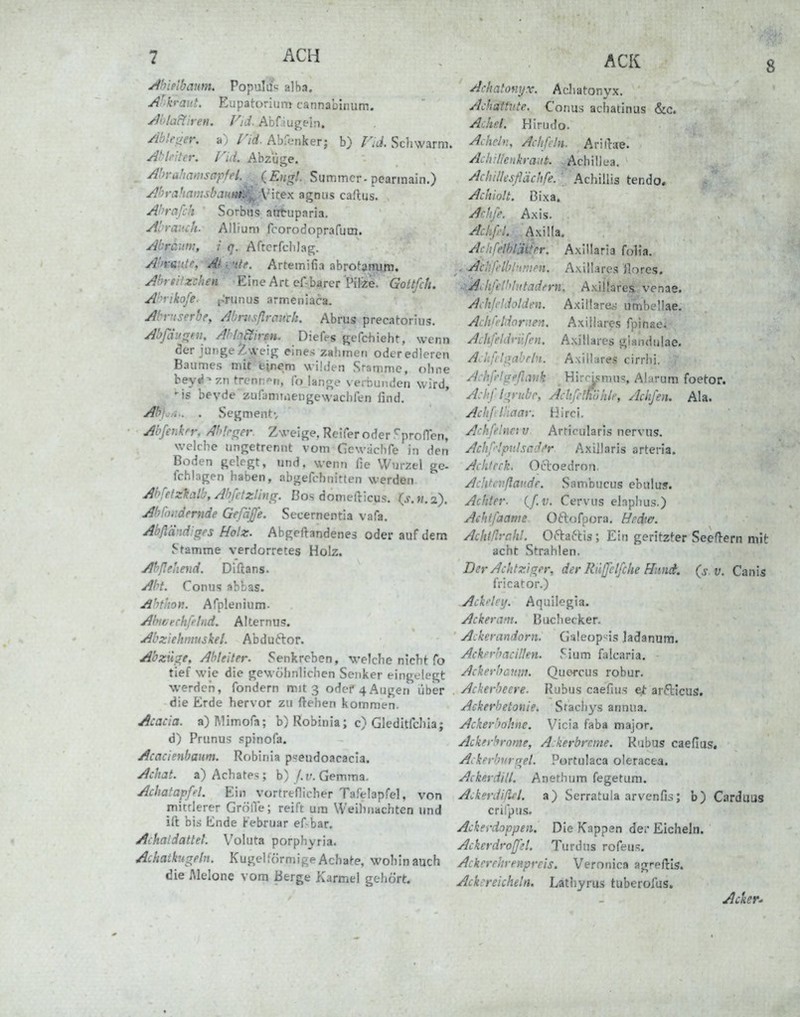 7 ACH
Abielbaum. Populus alba.
Abkraut. Eupatorium cannabinum.
Ablactiren. Vid. Abſäugeln.
Ableger. a) Vid. Abſenker; b) Vid. Schwarm.
Ableiter. Vid. Abzüge.
Abrahamsapfel. (Engl. Summer-pearmain.)
Abrahamsbaum. Vitex agnus caſtus.
Abraſch Sorbus aucuparia.
Abrauch. Allium ſcorodopraſum.
Abraum, i q. Afterſchlag.
Abraute, Abrute. Artemiſia abrotanum.
Abreitzchen Eine Art eſsbarer Pilze. Goltſch.
Abrikoſe. Prunus armeniaca.
Abruserbe, Abrusſtrauch. Abrus precatorius.
Abſäugen, Ablactiren. Dieſes geſchieht, wenn
der junge Zweig eines zahmen oder edleren
Baumes mit einem wilden Stamme, ohne
beyde zu trennen, ſo lange verbunden wird,
bis beyde zuſammengewachſen ſind.
Segment.
Abſenker, Ableger. Zweige, Reiſer oder Sproſſen,
welche ungetrennt vom Gewächſe in den
Boden gelegt, und, wenn ſie Wurzel ge-
ſchlagen haben, abgeſchnitten werden
Abſetzkalb, Abſetzling. Bos domeſticus. (s. n. 2).
Abſondernde Gefäſſe. Secernentia vaſa.
Abſtändiges Holz. Abgeſtandenes oder auf dem
Stamme verdorretes Holz.
Abſtehend. Diſtans.
Abt. Conus abbas.
Abthon. Aſplenium.
Abwechſelnd. Alternus.
Abziehmuskel. Abductor.
Abzüge, Ableiter. Senkreben, welche nicht ſo
tief wie die gewöhnlichen Senker eingelegt
werden, ſondern mit 3 oder 4 Augen über
die Erde hervor zu ſtehen kommen.
Acacia. a) Mimoſa; b) Robinia; c) Gleditſchia;
d) Prunus spinoſa.
Acacienbaum. Robinia pseudoacacia.
Achat. a) Achates; b) ſ. v. Gemma.
Achatapfel. Ein vortreflicher Tafelapfel, von
mittlerer Gröſſe; reift um Weihnachten und
iſt bis Ende Februar eſsbar.
Achatdattel. Voluta porphyria.
Achatkugeln. Kugelförmige Achate, wohin auch
die Melone vom Berge Karmel gehört.
ACK 8
Achatonyx. Achatonyx.
Achattute. Conus achatinus &c.
Achel. Hirudo.
Acheln, Achſeln. Ariſtae.
Achillenkraut. Achillea.
Achillesflächſe. Achillis tendo.
Achiolt. Bixa.
Achſe. Axis.
Achſel. Axilla.
Achſelblätter. Axillaria folia.
Achſelblumen. Axillares flores.
Achſelblutadern. Axillares venae.
Achſeldolden. Axillares umbellae.
Achſeldornen. Axillares ſpinae.
Achſeldrüſen. Axillares glandulae.
Achſelgabeln. Axillares cirrhi.
Achſelgeſtank Hircismus, Alarum foetor.
Achſelgrube, Achſelhöhle, Achſen. Ala.
Achſelhaar. Hirci.
Achſelnerv Articularis nervus.
Achſelpulsader Axillaris arteria.
Achteck. Octoedron.
Achtenſtaude. Sambucus ebulus.
Achter. (ſ. v. Cervus elaphus.)
Achtſaame Octoſpora. Hedw.
Achtſtrahl. Octactis; Ein geritzter Seeſtern mit
acht Strahlen.
Der Achtziger, der Rüſſelſche Hund. (s. v. Canis
fricator.)
Ackeley. Aquilegia.
Ackeram. Buchecker.
Ackerandorn. Galeopsis ladanum.
Ackerbacillen. Sium falcaria.
Ackerbaum. Quercus robur.
Ackerbeere. Rubus caeſius et arcticus.
Ackerbetonie. Stachys annua.
Ackerbohne. Vicia faba major.
Ackerbrome, Ackerbreme. Rubus caeſius.
Ackerburgel. Portulaca oleracea.
Ackerdill. Anethum ſegetum.
Ackerdiſtel. a) Serratula arvenſis; b) Carduus
criſpus.
Ackerdoppen. Die Kappen der Eicheln.
Ackerdroſſel. Turdus roſeus.
Ackerehrenpreis. Veronica agreſtis.
Ackereicheln. Lathyrus tuberoſus.
Acker-